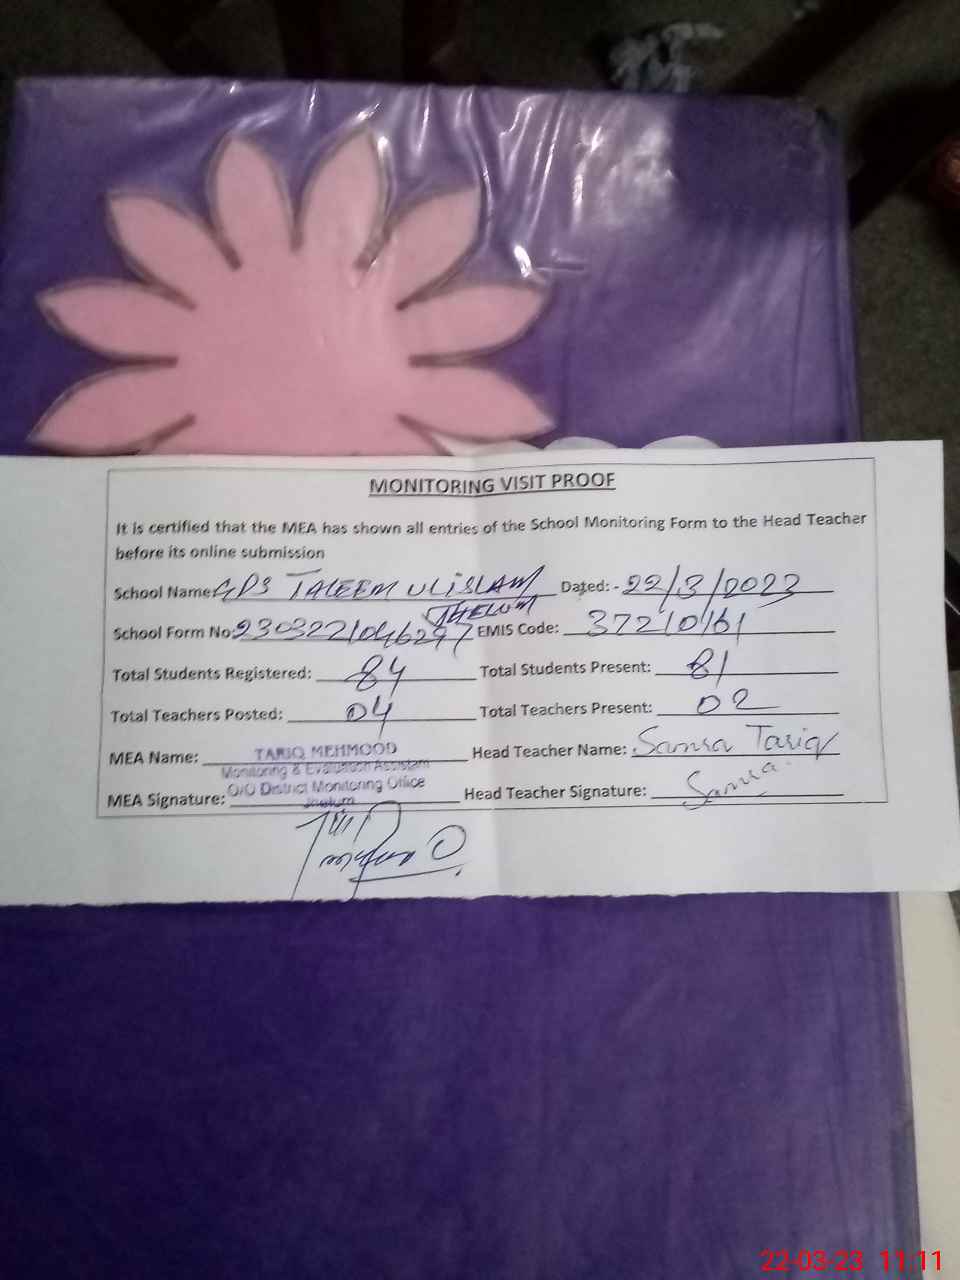 MONITORING VISIT PROOF
It is certified that the MEA has shown all entries of the School Monitoring Form to the Head Teacher
before its online submission
School Name: GPS TALEEM UL ISLAM Dated: - 22/3/2023
JHELUM
School Form No: 2303221046297 EMIS Code: 37210161
Total Students Registered: 84 Total Students Present: 81
Total Teachers Posted: 04 Total Teachers Present: 02
MEA Name: TARIQ MEHMOOD Head Teacher Name: Samra Tariq
Monitoring & Evaluation Assistant
MEA Signature: O/O District Monitoring Office Head Teacher Signature: Samra.
Jhelum
22-03-23 11:11